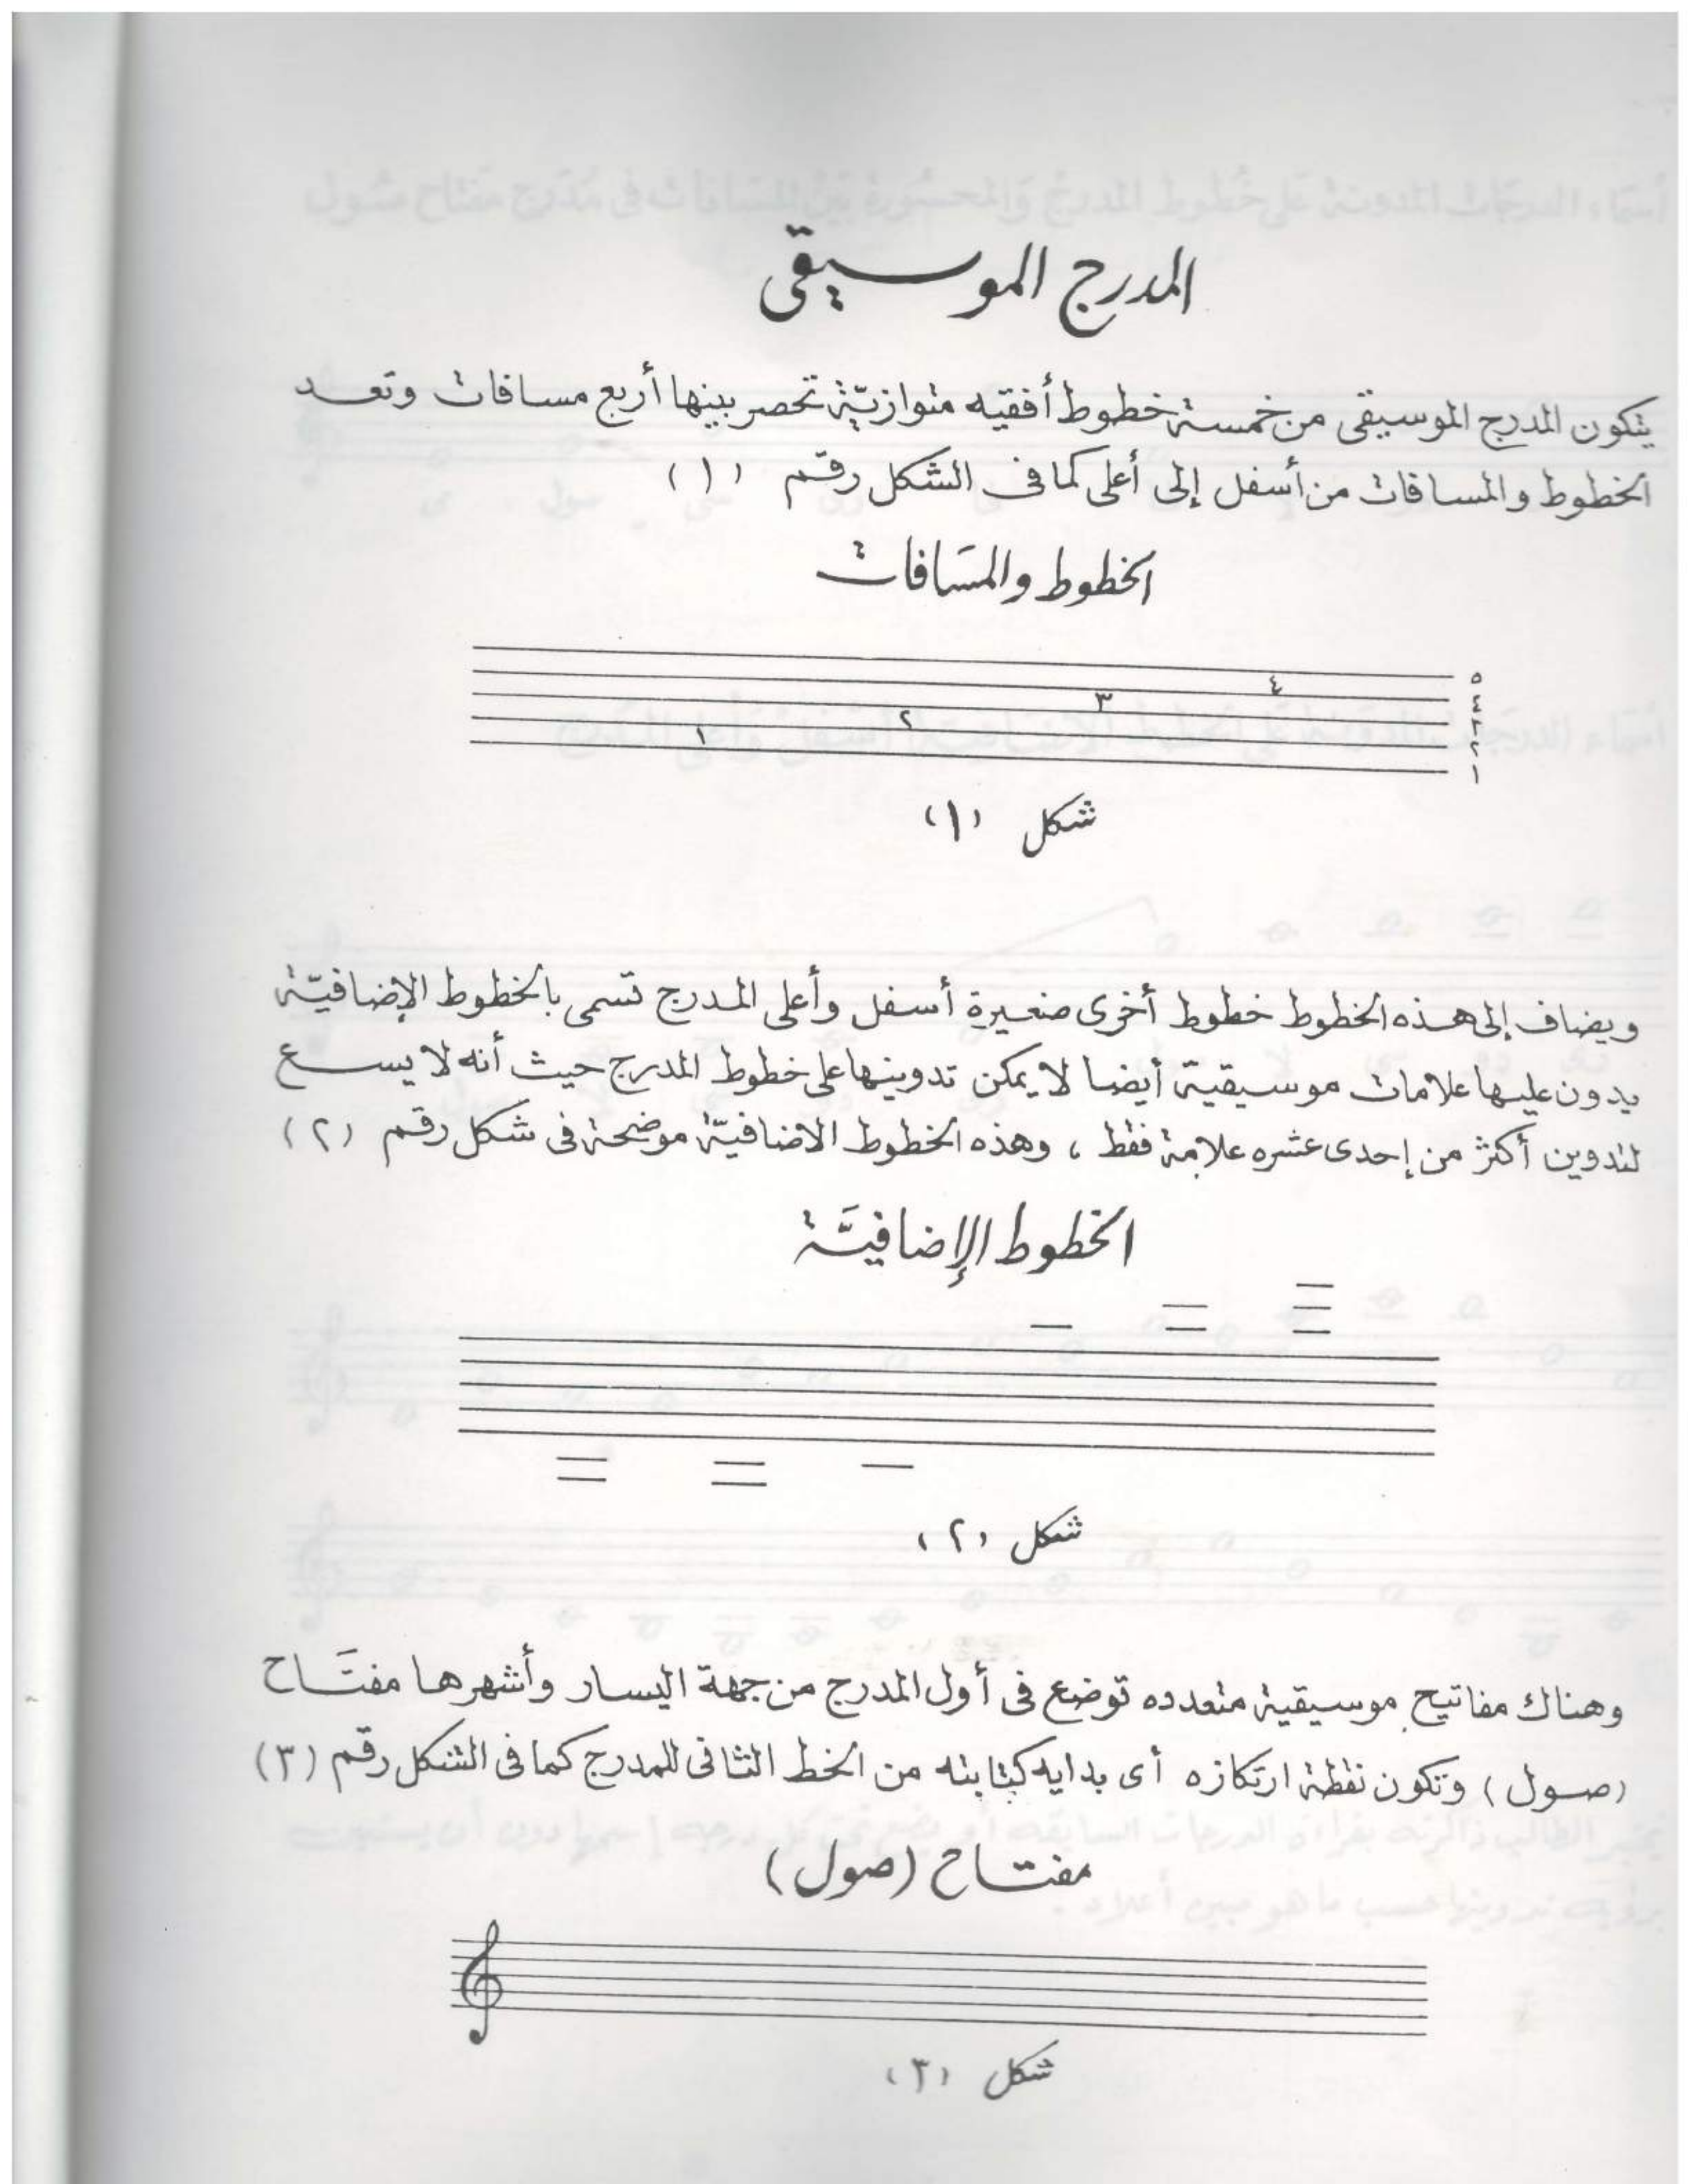 المدرج الموسيقى
يتكون المدرج الموسيقى من خمسة خطوط أفقيه متوازيّة تحصر بينها أربع مسافات وتعد
الخطوط والمسافات من أسفل إلى أعلى كما فى الشكل رقم (١)
الخطوط والمسَافات
٥
٤
٣
٢
١
١ ٢ ٣ ٤
شكل (١)
ويضاف إلى هذه الخطوط خطوط أخرى صغيرة أسفل وأعلى المدرج تسمى بالخطوط الإضافيّة
يدون عليها علامات موسيقية أيضا لا يمكن تدوينها على خطوط المدرج حيث أنه لا يسع
لتدوين أكثر من إحدى عشره علامة فقط ، وهذه الخطوط الاضافيّة موضحة فى شكل رقم (٢)
الخطوط الإضافيَّة
شكل (٢)
وهناك مفاتيح موسيقية متعدده توضع فى أول المدرج من جهة اليسار وأشهرها مفتَاح
(صول) وتكون نقطة ارتكازه أى بدايه كتابته من الخط الثانى للمدرج كما فى الشكل رقم (٣)
مفتاح (صول)
شكل (٣)